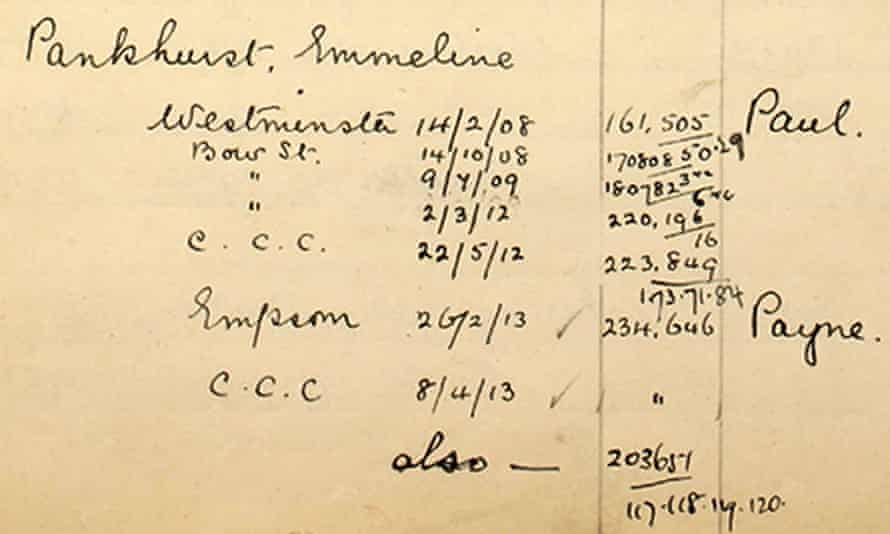 Pankhurst, Emmeline
Westminster 14/2/08 161,505 Paul.
Bow St. 14/10/08 170808
" 9/7/09 180782
" 2/3/12 220,196
16
C. C. C. 22/5/12 223,849
173.71.84
Empsom 26/2/13 ✓ 234,646 Payne.
C.C.C 8/4/13 ✓ "
also — 203651
117.118.119.120.